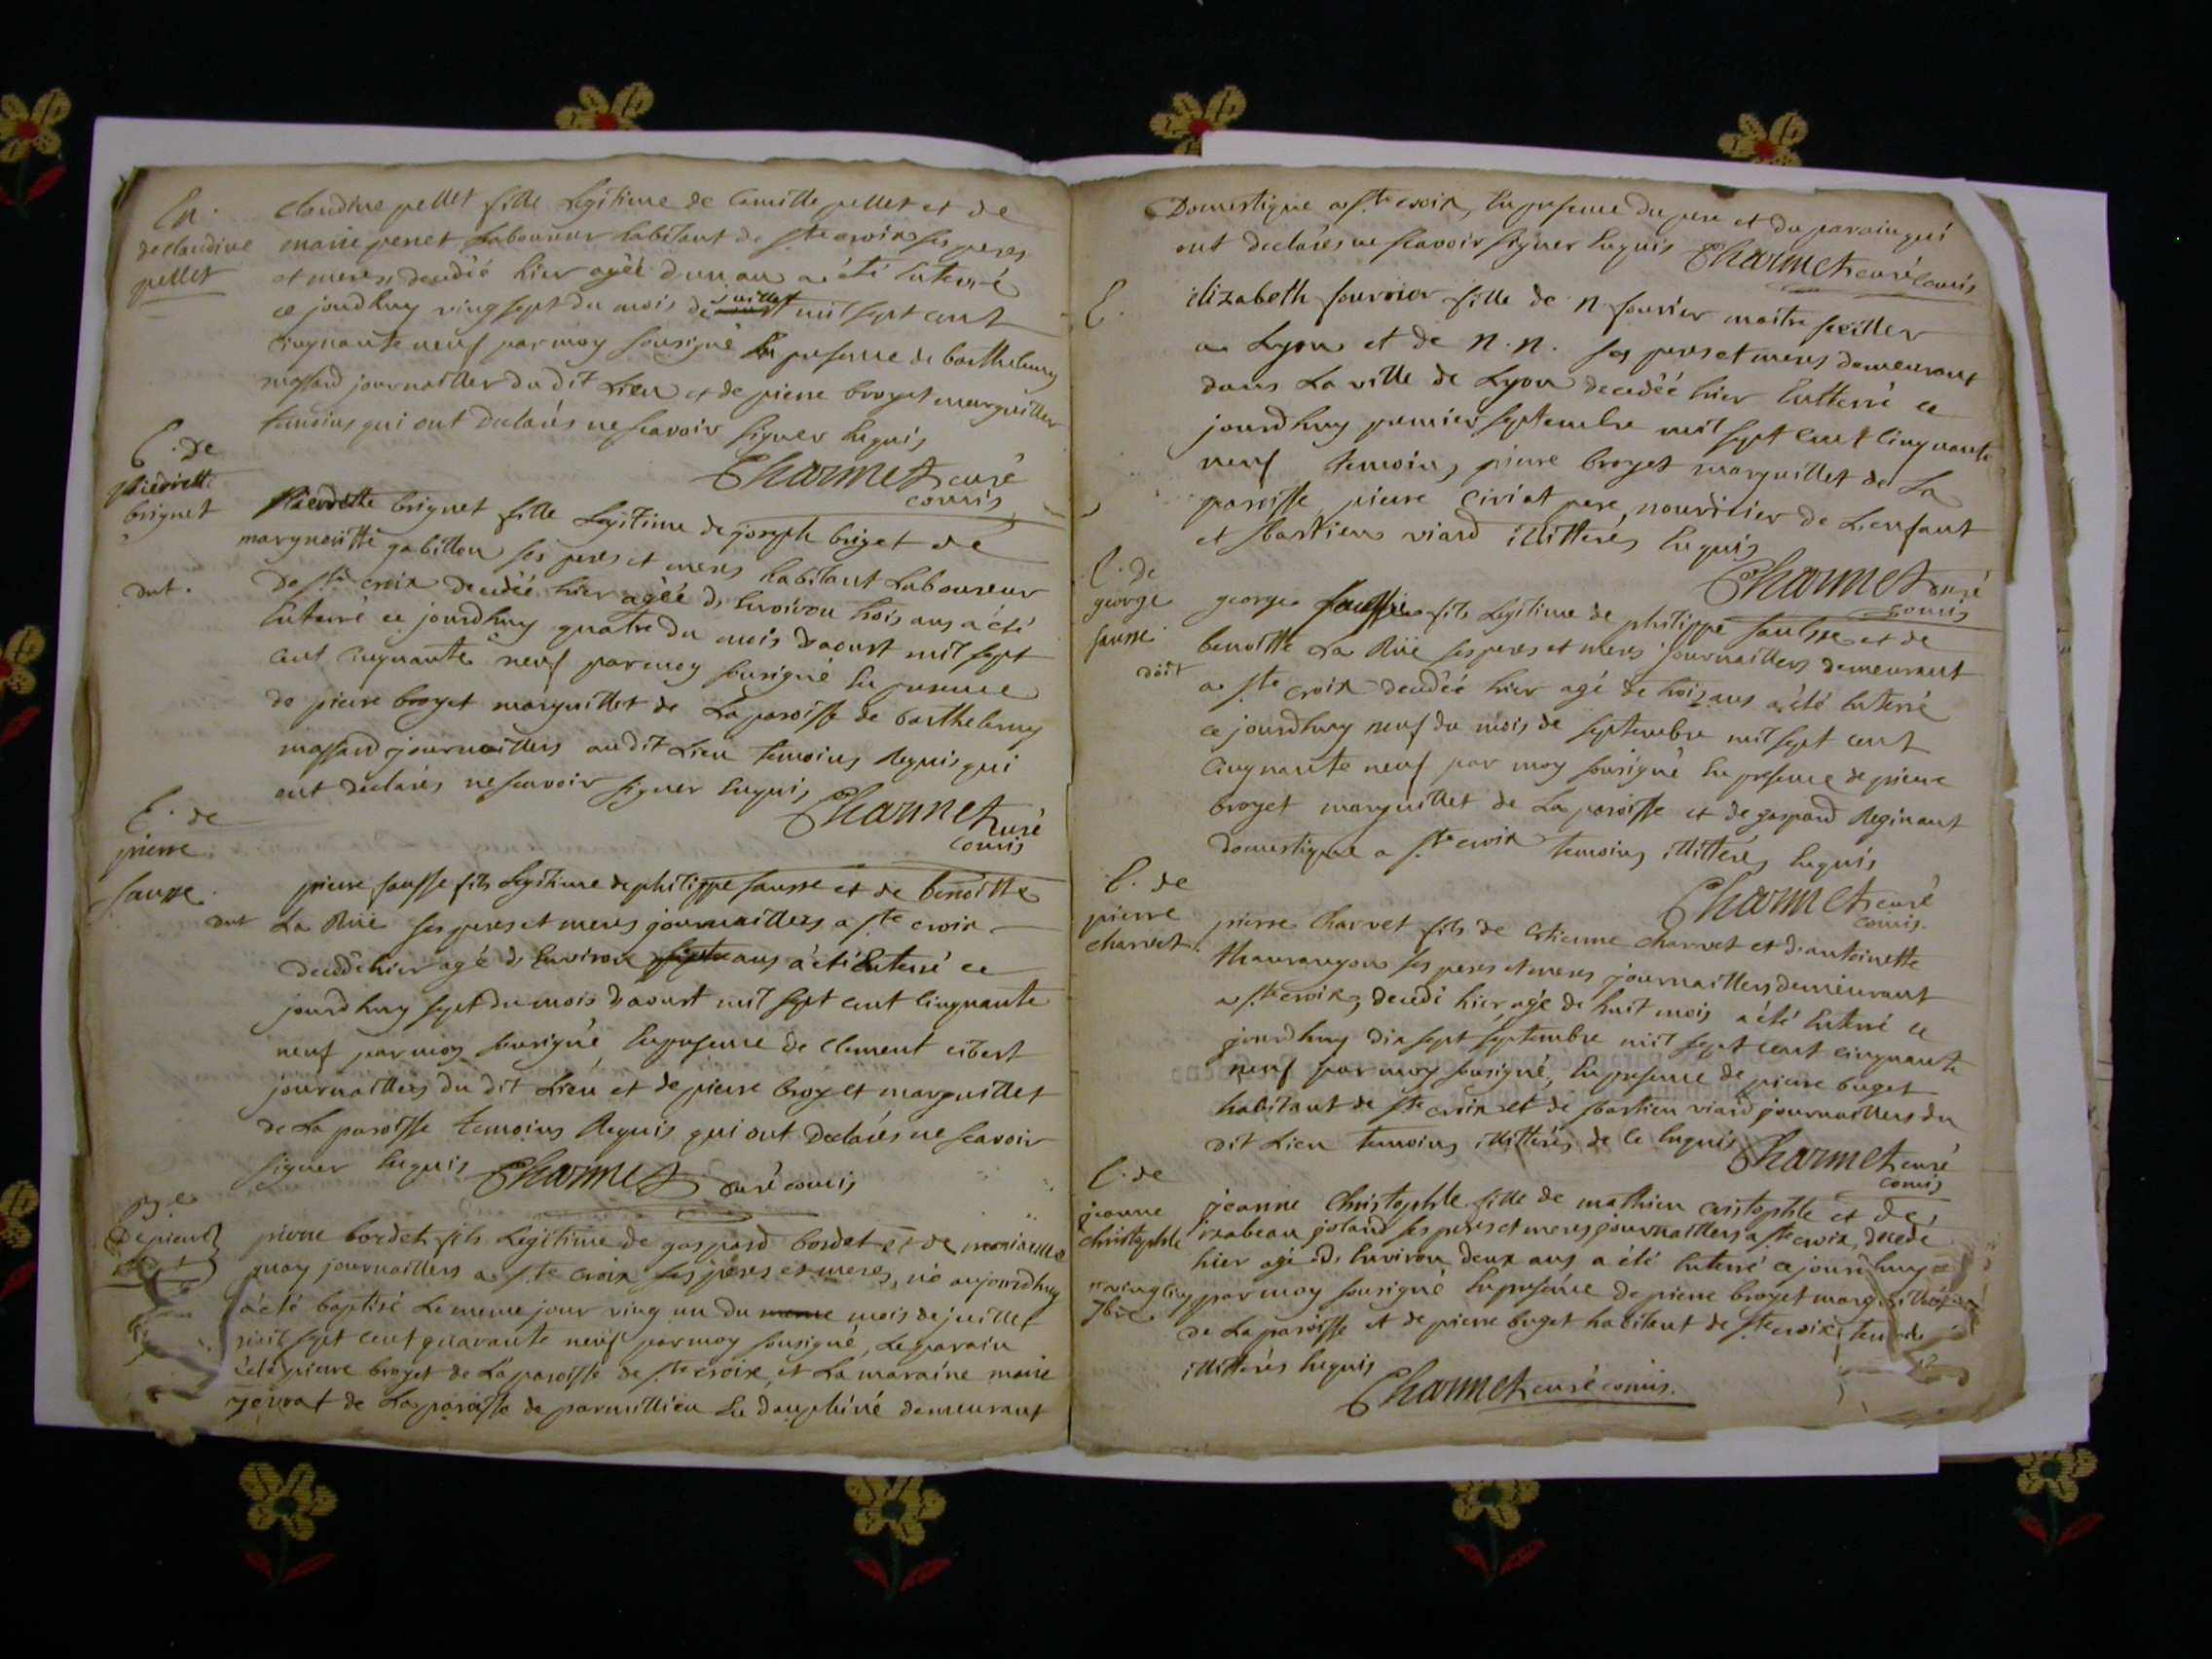 En.
de claudine
pellet
claudine pellet fille legitime de Camille pellet et de
marie penet Laboureur habitant de Ste croix ses peres
et meres, decedée hier agée d'un an a été enterré
ce jourdhuy vingsept du mois de juillet mil sept cent
cinquante neuf par moy sousigné En presence de barthelemy
massard journaillier du dit Lieu et de pierre broyet marguillier
temoins qui ont declarés ne scavoir signer Enquis
Charmet curé
comis
E. de
pierrette
briguet
dnt.
Pierrette briguet fille legitime de joseph briget et de
margueritte gabillon ses peres et meres habitant Laboureur
de Ste croix decedée hier agée d'Environ trois ans a été
Enterré ce jourdhuy quatre du mois daoust mil sept
cent cinquante neuf par moy sousigné En presence
de pierre broyet marguillet de La paroisse de barthelemy
massard journailliers audit Lieu temoins Requis qui
ont declarés ne scavoir signer Enquis
Charmet curé
comis
E. de
pierre
sausse.
dnt
pierre sausse fils legitime de philippe sausse et de benoitte
La Rüe ses peres et meres journailliers a Ste croix
decedé hier agé d'Environ sept ans a été Enterré ce
jourdhuy sept du mois d'aoust mil sept cent cinquante
neuf par moy sousigné, En presence de Clement cibert
journailliers du dit Lieu et de pierre broyet marguillet
de La paroisse temoins Requis qui ont declarés ne scavoir
signer Enquis Charmet curé comis
De pierre
pierre bordet fils legitime de gaspard bordet et de
guay journailliers a Ste croix ses peres et meres, né aujourdhuy
a été baptisé Le meme jour ving un du meme mois de juillet
mil sept cent quarante neuf par moy sousigné, Le parain
été pierre broyet de La paroisse de Ste croix, et La maraine marie
de La paroisse de parmillieu En dauphiné demeurant
Domestique a Ste croix, En presence du pere et du parain qui
ont declarés ne scavoir signer Enquis Charmet curé comis
E.
Elizabeth fournier fille de N fournier maitre
a Lyon et de N. N. ses peres et meres demeurant
dans La ville de Lyon decedée hier Enterré ce
jourdhuy premier septembre mil sept cent cinquante
neuf temoins pierre broyet marguillet de La
paroisse pierre Civiat pere nourricier de L'enfant
et sbastien viard illitterés Enquis
Charmet curé
comis
E. de
george
sausse
dnt
george sausse fils legitime de philippe sausse et de
benoitte La Rüe ses peres et meres journailliers demeurant
a Ste croix decedée hier agé de trois ans a été Enterré
ce jourdhuy neuf du mois de septembre mil sept cent
cinquante neuf par moy sousigné En presence de pierre
broyet marguillet de La paroisse et de gaspard Reginaut
domestique a Ste croix temoins illitterés Enquis
Charmet curé
comis.
E. de
pierre
charvet.
pierre charvet fils de Etienne charvet et d'antoinette
ses peres et meres journailliers demeurant
a Ste croix, decedé hier, agé de huit mois a été Enterré ce
jourdhuy dix sept septembre mil sept cent cinquante
neuf par moy sousigné, En presence de pierre buget
habitant de Ste croix et de sbastien viard journailliers du
dit Lieu temoins illitterés de ce Enquis Charmet curé
comis
E. de
jeanne
christophle
jeanne Christophle fille de mathieu cristophle et de
izabeau jotard ses peres et meres journailliers a Ste croix, decedé
hier agé d'Environ deux ans a été Enterré ce jourdhuy
ving cinq 7bre
par moy sousigné En presence de pierre broyet marguillet
de La paroisse et de pierre buget habitant de Ste croix
illitterés Enquis
Charmet curé comis.